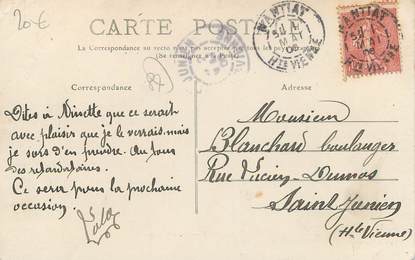 20€
CARTE POSTALE
La Correspondance au recto n'est pas acceptée par tous les pays
(Se renseigner à la Poste)
Correspondance
Adresse
NANTIAT
MAI
Hte VIENNE
NANTIAT
Hte VIENNE
Dites à Ninette que ce serait
avec plaisir que je le verrais, mais
je sors d'en prendre. Au tour
des retardataires.
Ce sera pour la prochaine
occasion.
Monsieur
Blanchard boulanger
Rue Lucien-Dumas
Saint Junien
(Hte Vienne)